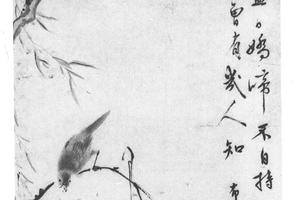 嬌啼不自持
曾有幾人知